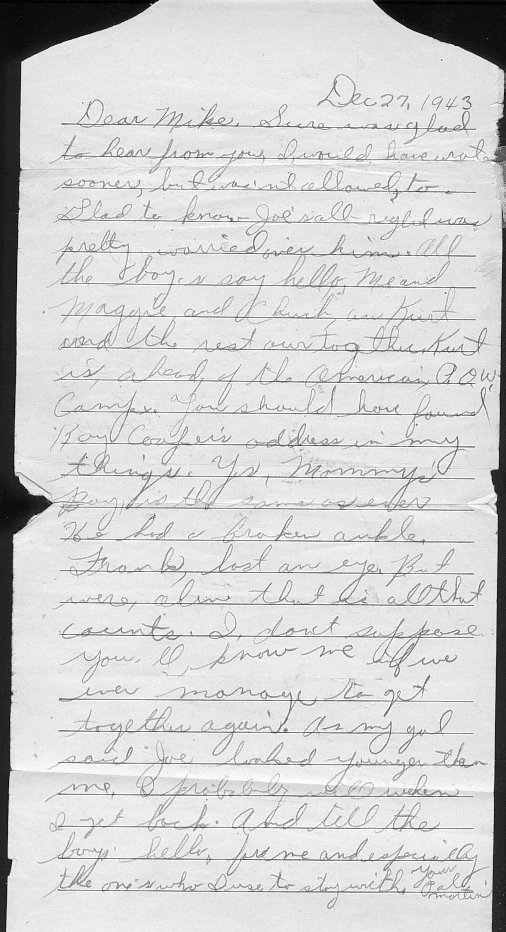 Dec 27, 1943
Dear Mike. Sure was glad
to hear from you, I would have wrote
sooner, but wasn't allowed, to.
Glad to know Joe's all right was
pretty worried over him. All
the boys say hello, Me and
Maggie, and Chuck, an Kurt
and the rest our together. Kurt
is, ahead, of the American P.O.W.
Camp. You should have found
Kay Cooper's address in my
things. Ys, Mommy's
Boy, is the same as ever
He had a broken ankle.
Frank, lost an eye. But
were, alive that is all that
counts. I, don't suppose
you'll, know me if we
ever manage, to get
together again. As my gal
said Joe looked younger than
me, I probably will when
I get back. And tell the
boys hello, for me and especially
the one's who I use to stay with.
Your
Pal
Martin